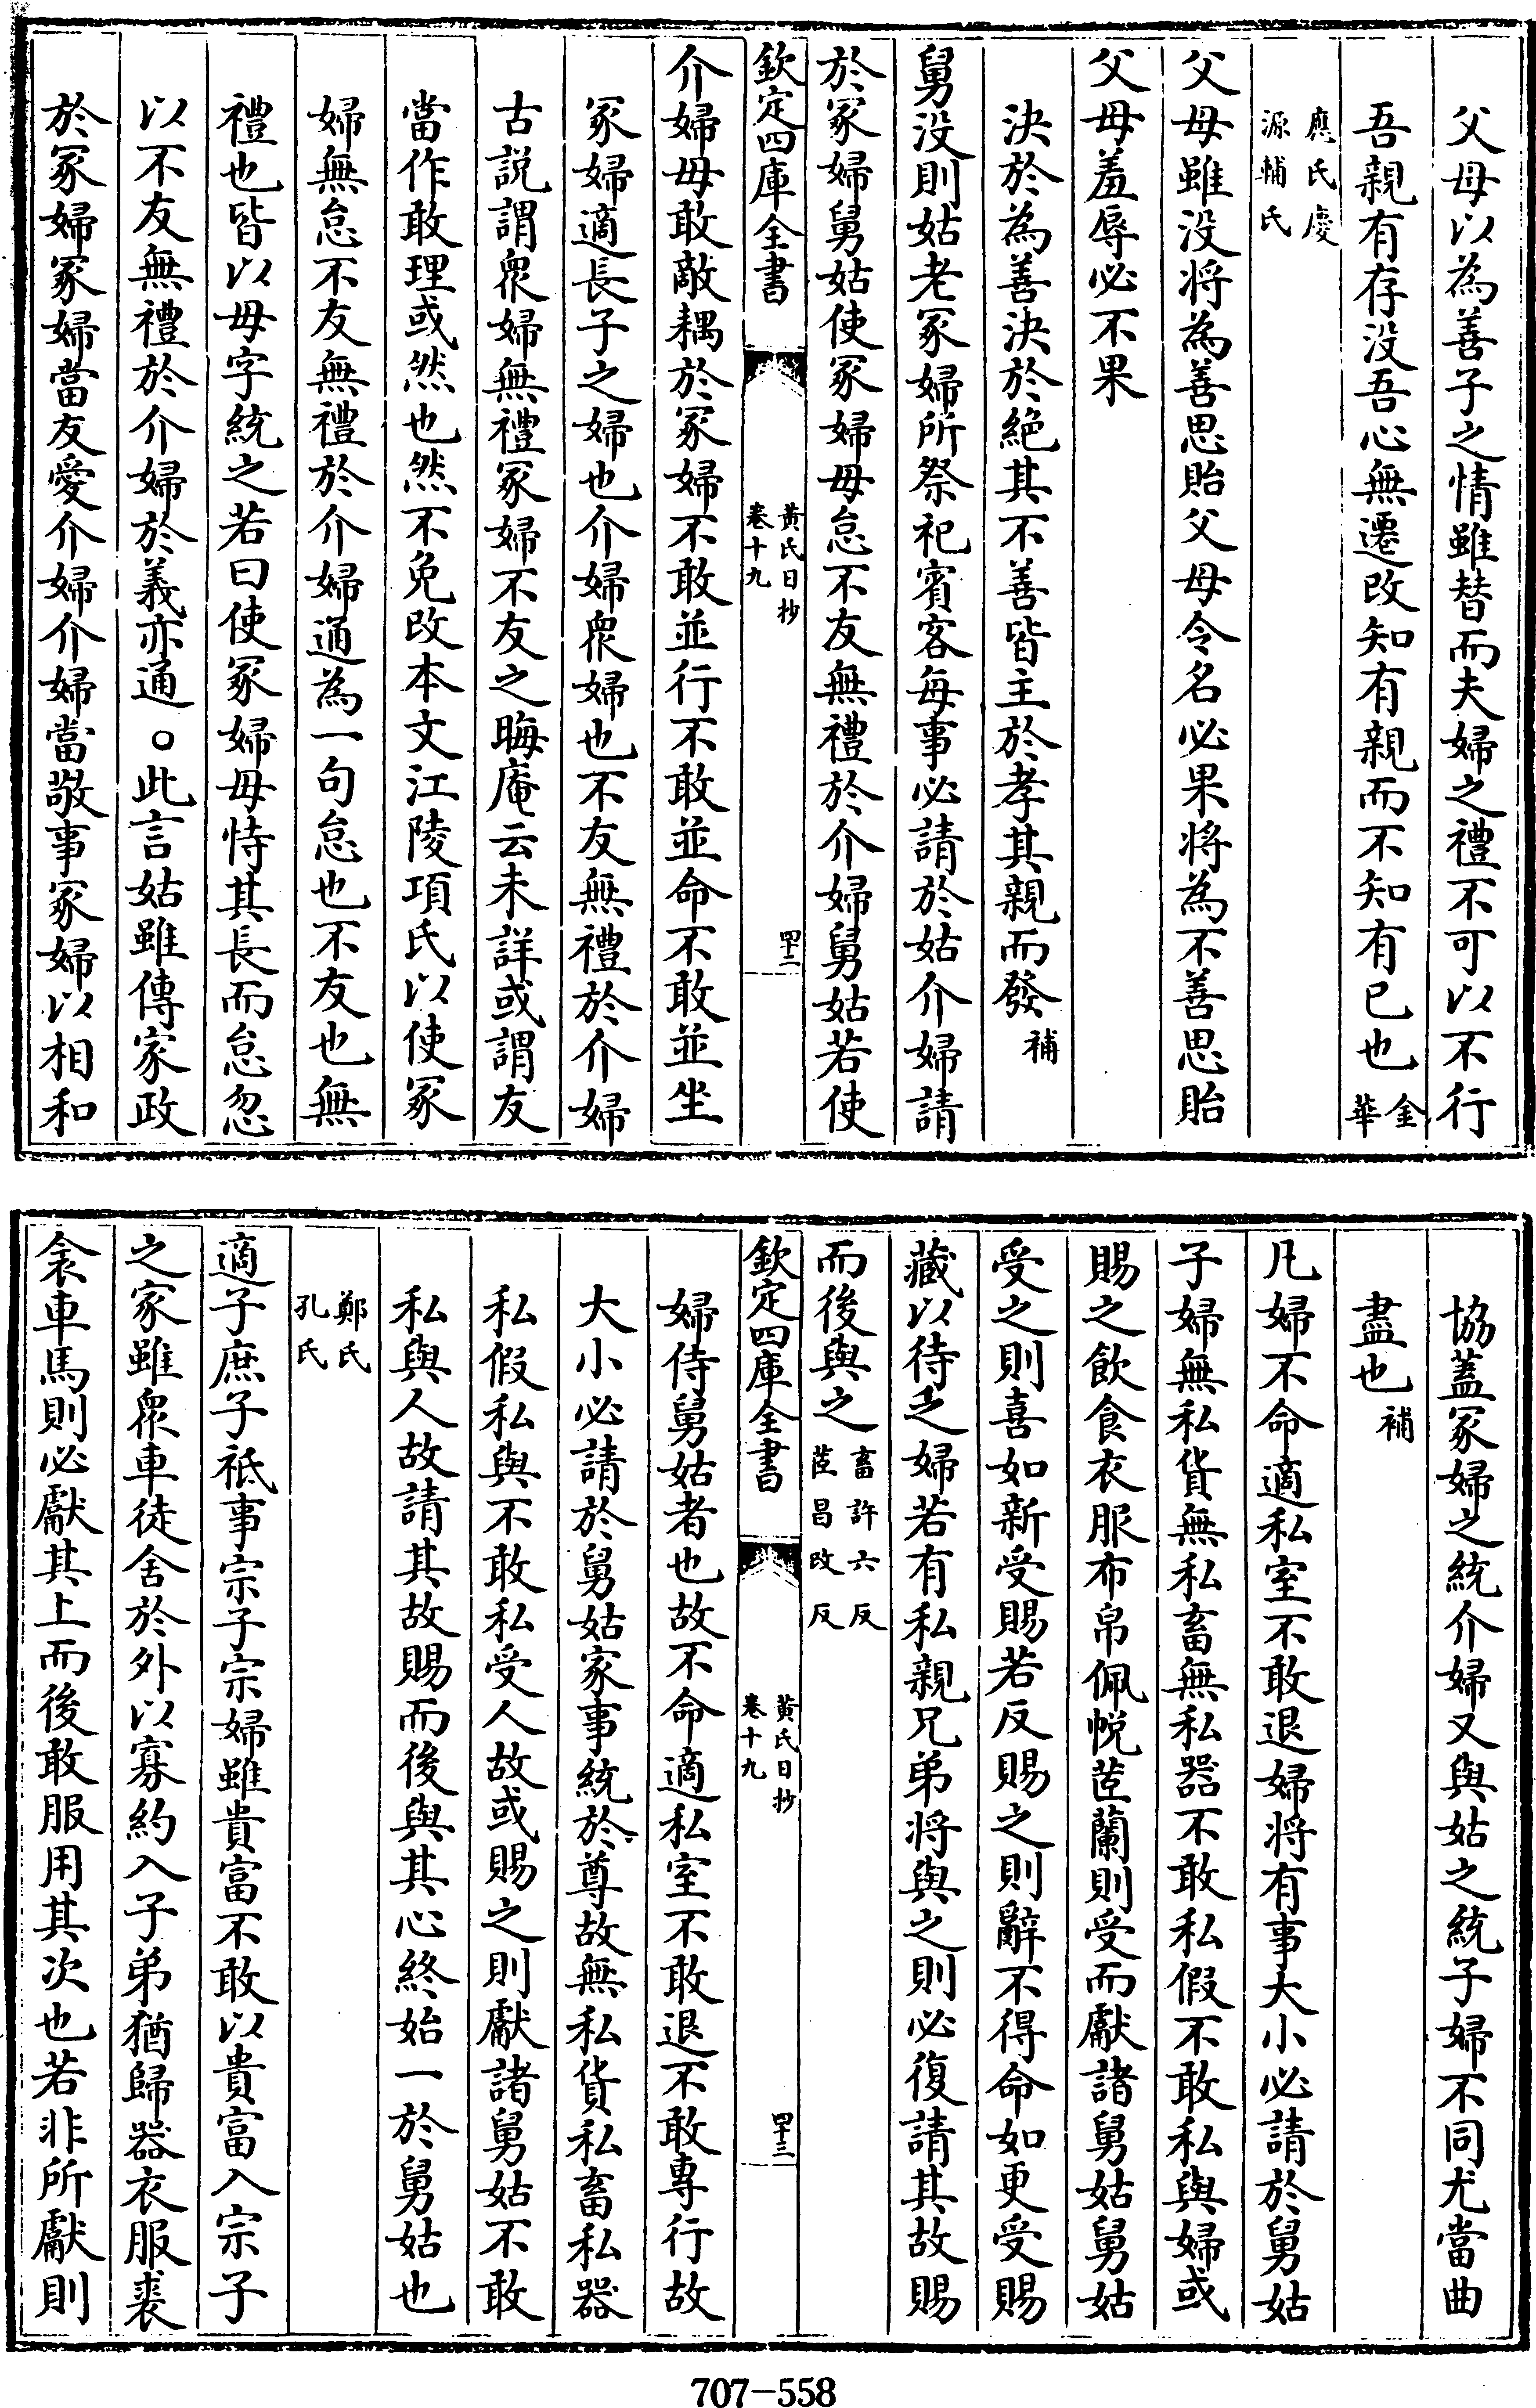 父母以為善子之情雖替而夫婦之禮不可以不行
吾親有存没吾心無遷改知有親而不知有已也金華
應氏慶源輔氏
父母雖没将為善思貽父母令名必果将為不善思貽
父母羞辱必不果
決於為善決於絶其不善皆主於孝其親而發補
舅没則姑老冢婦所祭祀賓客每事必請於姑介婦請
於冢婦舅姑使冢婦毋怠不友無禮於介婦舅姑若使
欽定四庫全書
黄氏日抄
卷十九
四十二
介婦毋敢敵耦於冢婦不敢並行不敢並命不敢並坐
冢婦適長子之婦也介婦衆婦也不友無禮於介婦
古説謂衆婦無禮冢婦不友之晦庵云未詳或謂友
當作敢理或然也然不免改本文江陵項氏以使冢
婦無怠不友無禮於介婦通為一句怠也不友也無
禮也皆以毋字統之若曰使冢婦毋恃其長而怠忽
以不友無禮於介婦於義亦通○此言姑雖傳家政
於冢婦冢婦當友愛介婦介婦當敬事冢婦以相和
協蓋冢婦之統介婦又與姑之統子婦不同尤當曲
盡也補
凡婦不命適私室不敢退婦将有事大小必請於舅姑
子婦無私貨無私畜無私器不敢私假不敢私與婦或
賜之飲食衣服布帛佩帨茝蘭則受而獻諸舅姑舅姑
受之則喜如新受賜若反賜之則辭不得命如更受賜
藏以待乏婦若有私親兄弟将與之則必復請其故賜
而後與之畜許六反茝昌改反
欽定四庫全書
黄氏日抄
卷十九
四十三
婦侍舅姑者也故不命適私室不敢退不敢專行故
大小必請於舅姑家事統於尊故無私貨私畜私器
私假私與不敢私受人故或賜之則獻諸舅姑不敢
私與人故請其故賜而後與其心終始一於舅姑也
鄭氏孔氏
適子庶子祗事宗子宗婦雖貴富不敢以貴富入宗子
之家雖衆車徒舍於外以寡約入子弟猶歸器衣服裘
衾車馬則必獻其上而後敢服用其次也若非所獻則
707-558